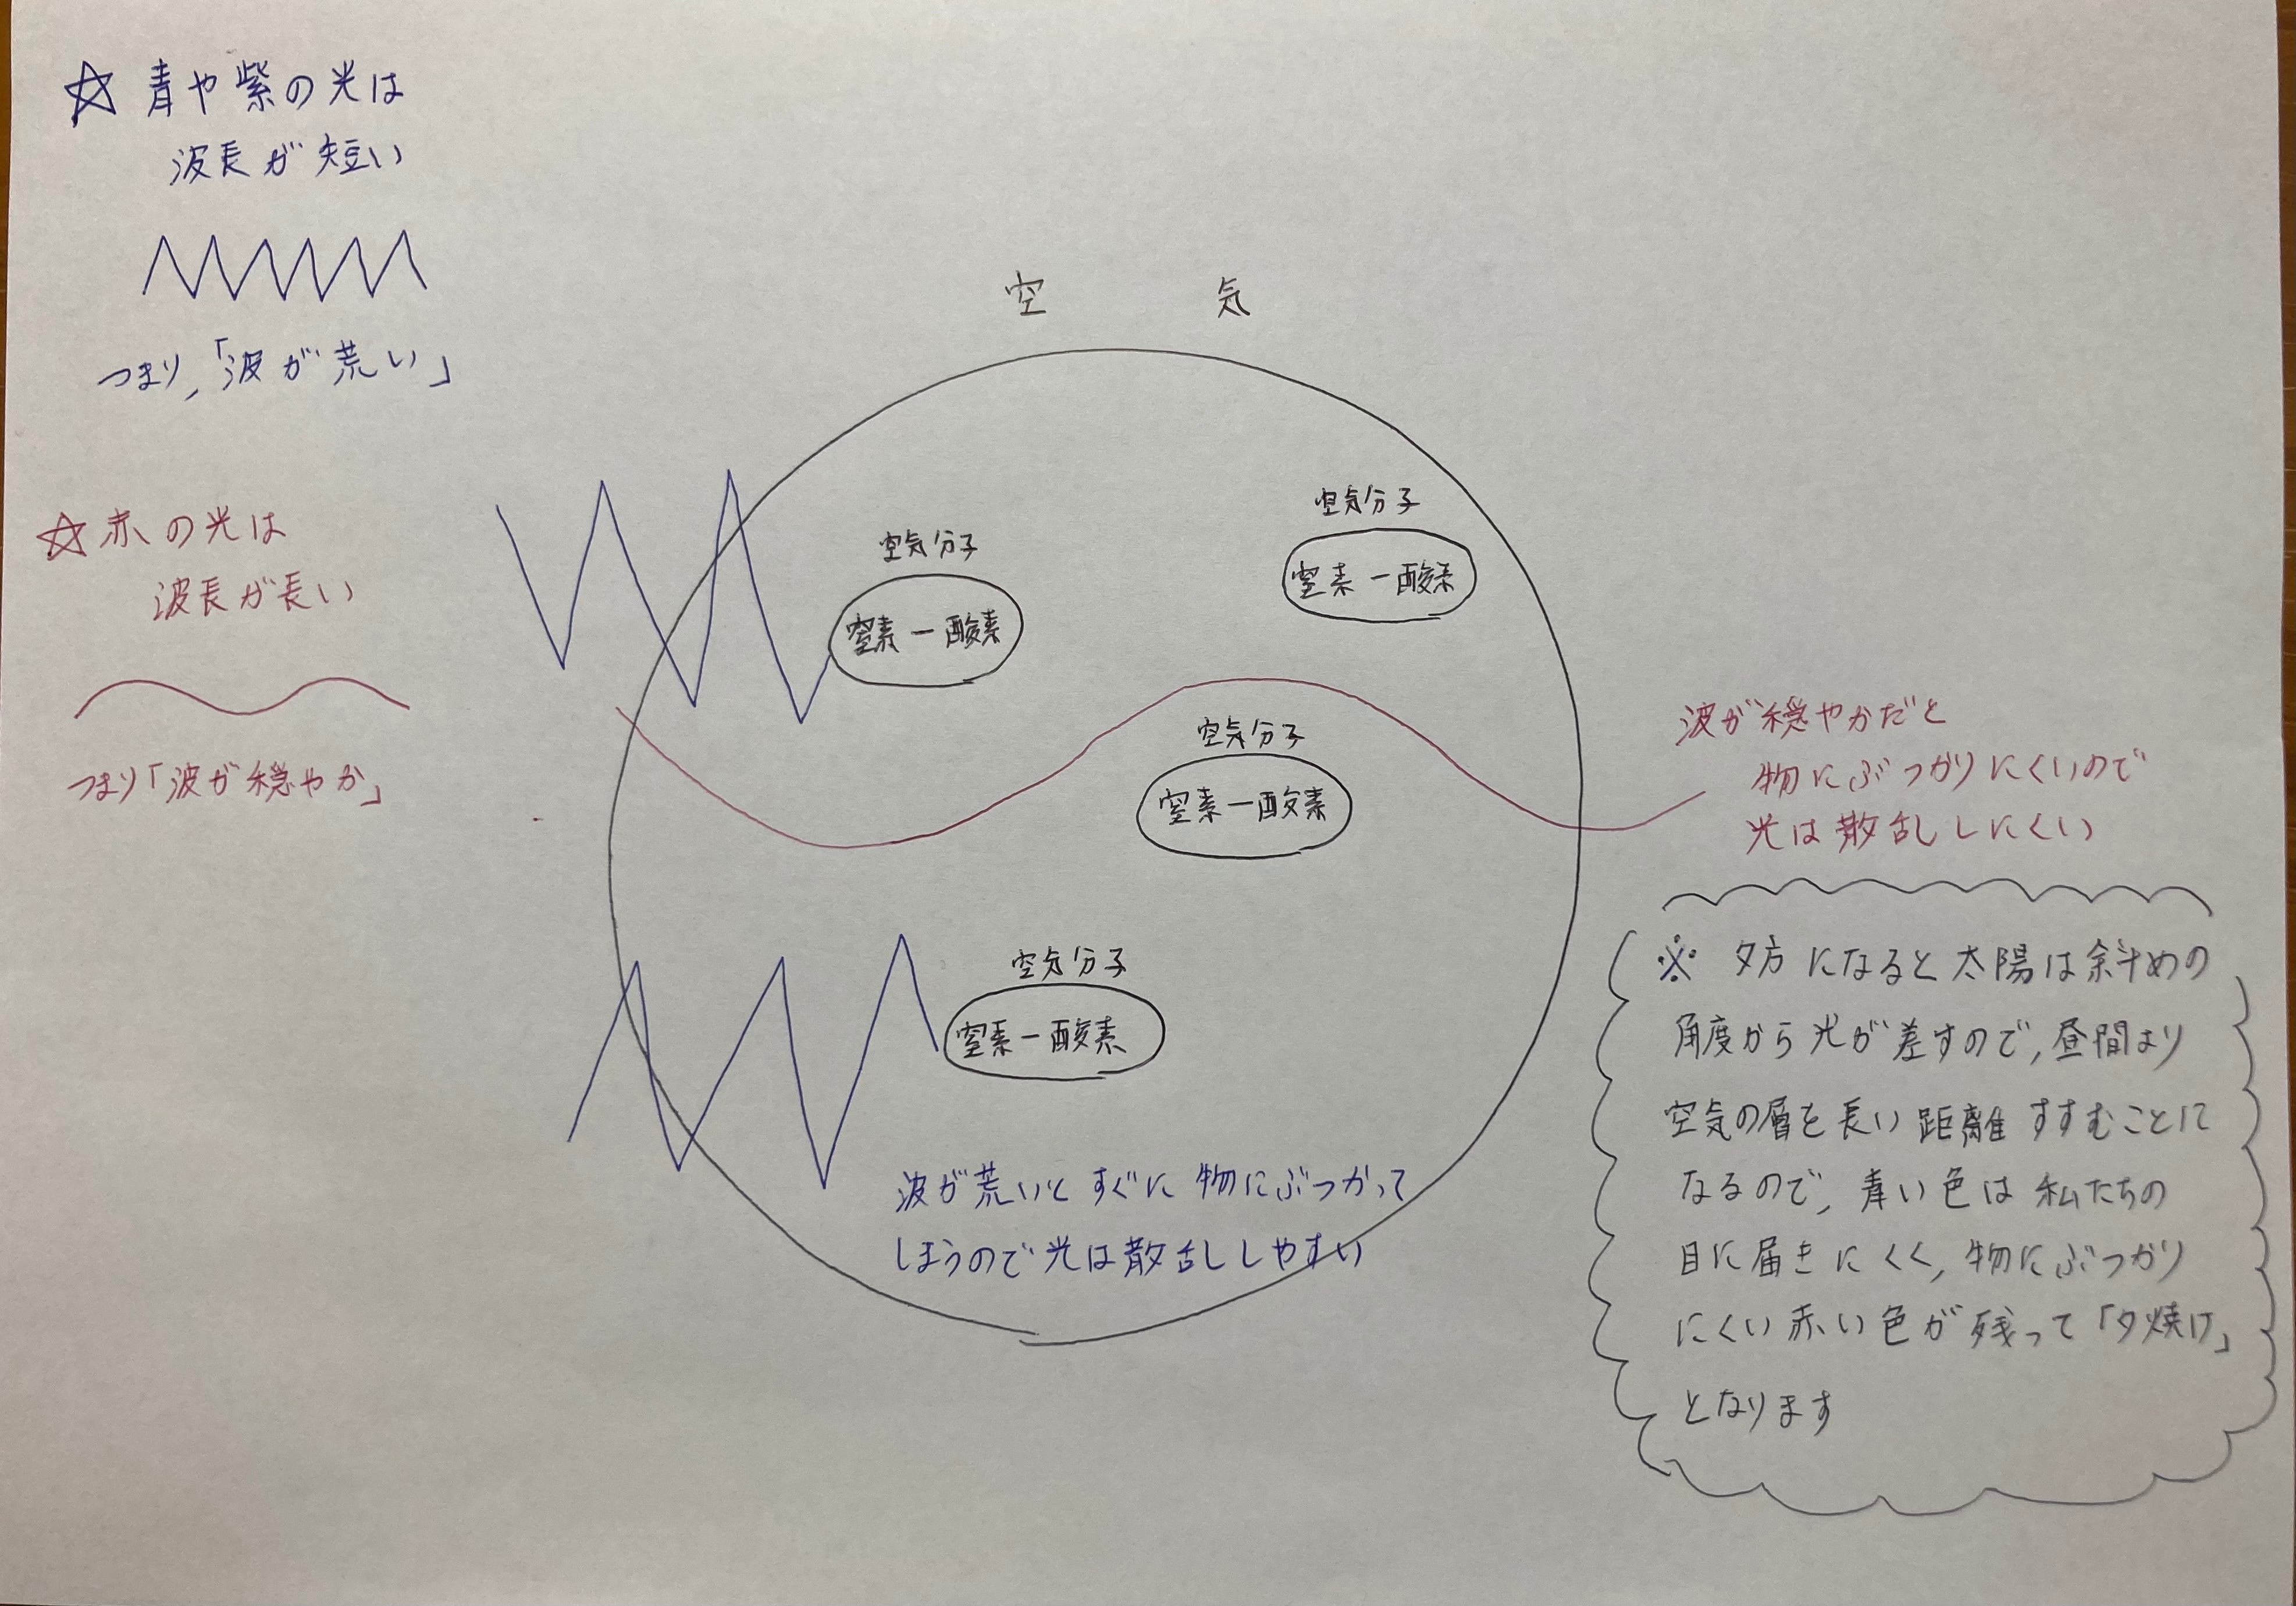 ☆ 青や紫の光は
波長が短い
つまり,「波が荒い」
☆ 赤の光は
波長が長い
つまり「波が穏やか」
空 気
空気分子
窒素ー酸素
空気分子
窒素ー酸素
空気分子
窒素ー酸素
空気分子
窒素ー酸素
波が荒いと すぐに 物にぶつかって
しまうので光は散乱しやすい
波が穏やかだと
物にぶつかりにくいので
光は散乱しにくい
※ 夕方になると太陽は斜めの
角度から光が差すので,昼間より
空気の層を長い距離すすむことに
なるので,青い色は私たちの
目に届きにくく,物にぶつかり
にくい赤い色が残って「夕焼け」
となります